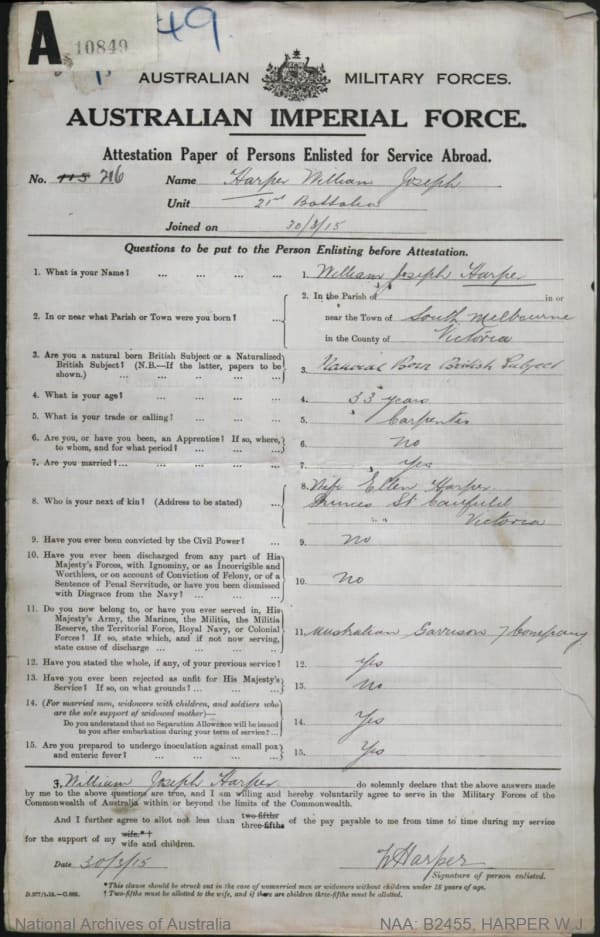 A
10849
49.
AUSTRALIAN MILITARY FORCES.
AUSTRALIAN IMPERIAL FORCE.
Attestation Paper of Persons Enlisted for Service Abroad.
No. 115 216 Name Harper William Joseph
Unit 21st Battalion
Joined on 30/3/15
Questions to be put to the Person Enlisting before Attestation.
1. What is your Name? ... ... ... ... 1. William Joseph Harper
2. In or near what Parish or Town were you born? ... ... 2. In the Parish of in or
near the Town of South Melbourne
in the County of Victoria
3. Are you a natural born British Subject or a Naturalized
British Subject? (N.B.—If the latter, papers to be
shown.) ... ... ... ... 3. Natural Born British Subject
4. What is your age? ... ... ... ... 4. 33 years
5. What is your trade or calling? ... ... ... 5. Carpenter
6. Are you, or have you been, an Apprentice? If so, where,
to whom, and for what period? ... ... ... 6. no
7. Are you married?... ... ... ... ... 7. yes
8. Who is your next of kin? (Address to be stated) ... 8. Wife Ellen Harper
Princes St Caulfield
Victoria
9. Have you ever been convicted by the Civil Power? ... 9. no
10. Have you ever been discharged from any part of His
Majesty's Forces, with Ignominy, or as Incorrigible and
Worthless, or on account of Conviction of Felony, or of a
Sentence of Penal Servitude, or have you been dismissed
with Disgrace from the Navy? ... ... ... 10. no
11. Do you now belong to, or have you ever served in, His
Majesty's Army, the Marines, the Militia, the Militia
Reserve, the Territorial Force, Royal Navy, or Colonial
Forces? If so, state which, and if not now serving,
state cause of discharge ... ... ... ... 11. Australian Garrison Company
12. Have you stated the whole, if any, of your previous service? 12. yes
13. Have you ever been rejected as unfit for His Majesty's
Service? If so, on what grounds? ... ... ... 13. no
14. (For married men, widowers with children, and soldiers who
are the sole support of widowed mother)—
Do you understand that no Separation Allowance will be issued
to you after embarkation during your term of service? ... 14. Yes
15. Are you prepared to undergo inoculation against small pox
and enteric fever? ... ... ... ... 15. Yes
I, William Joseph Harper do solemnly declare that the above answers made
by me to the above questions are true, and I am willing and hereby voluntarily agree to serve in the Military Forces of the
Commonwealth of Australia within or beyond the limits of the Commonwealth.
And I further agree to allot not less than two-fifths three-fifths of the pay payable to me from time to time during my service
for the support of my wife.*† wife and children.
Date 30/3/15 W Harper
Signature of person enlisted.
* This clause should be struck out in the case of unmarried men or widowers without children under 18 years of age.
† Two-fifths must be allotted to the wife, and if there are children three-fifths must be allotted.
National Archives of Australia NAA: B2455, HARPER W J